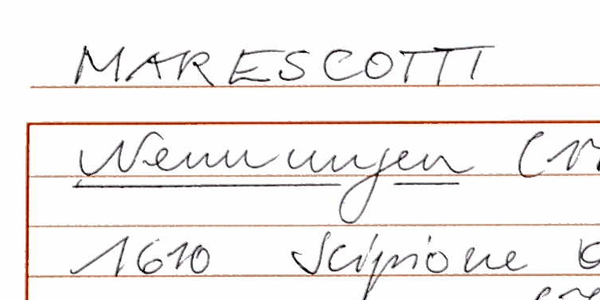 MARESCOTTI
Nennungen
1610 Scipione